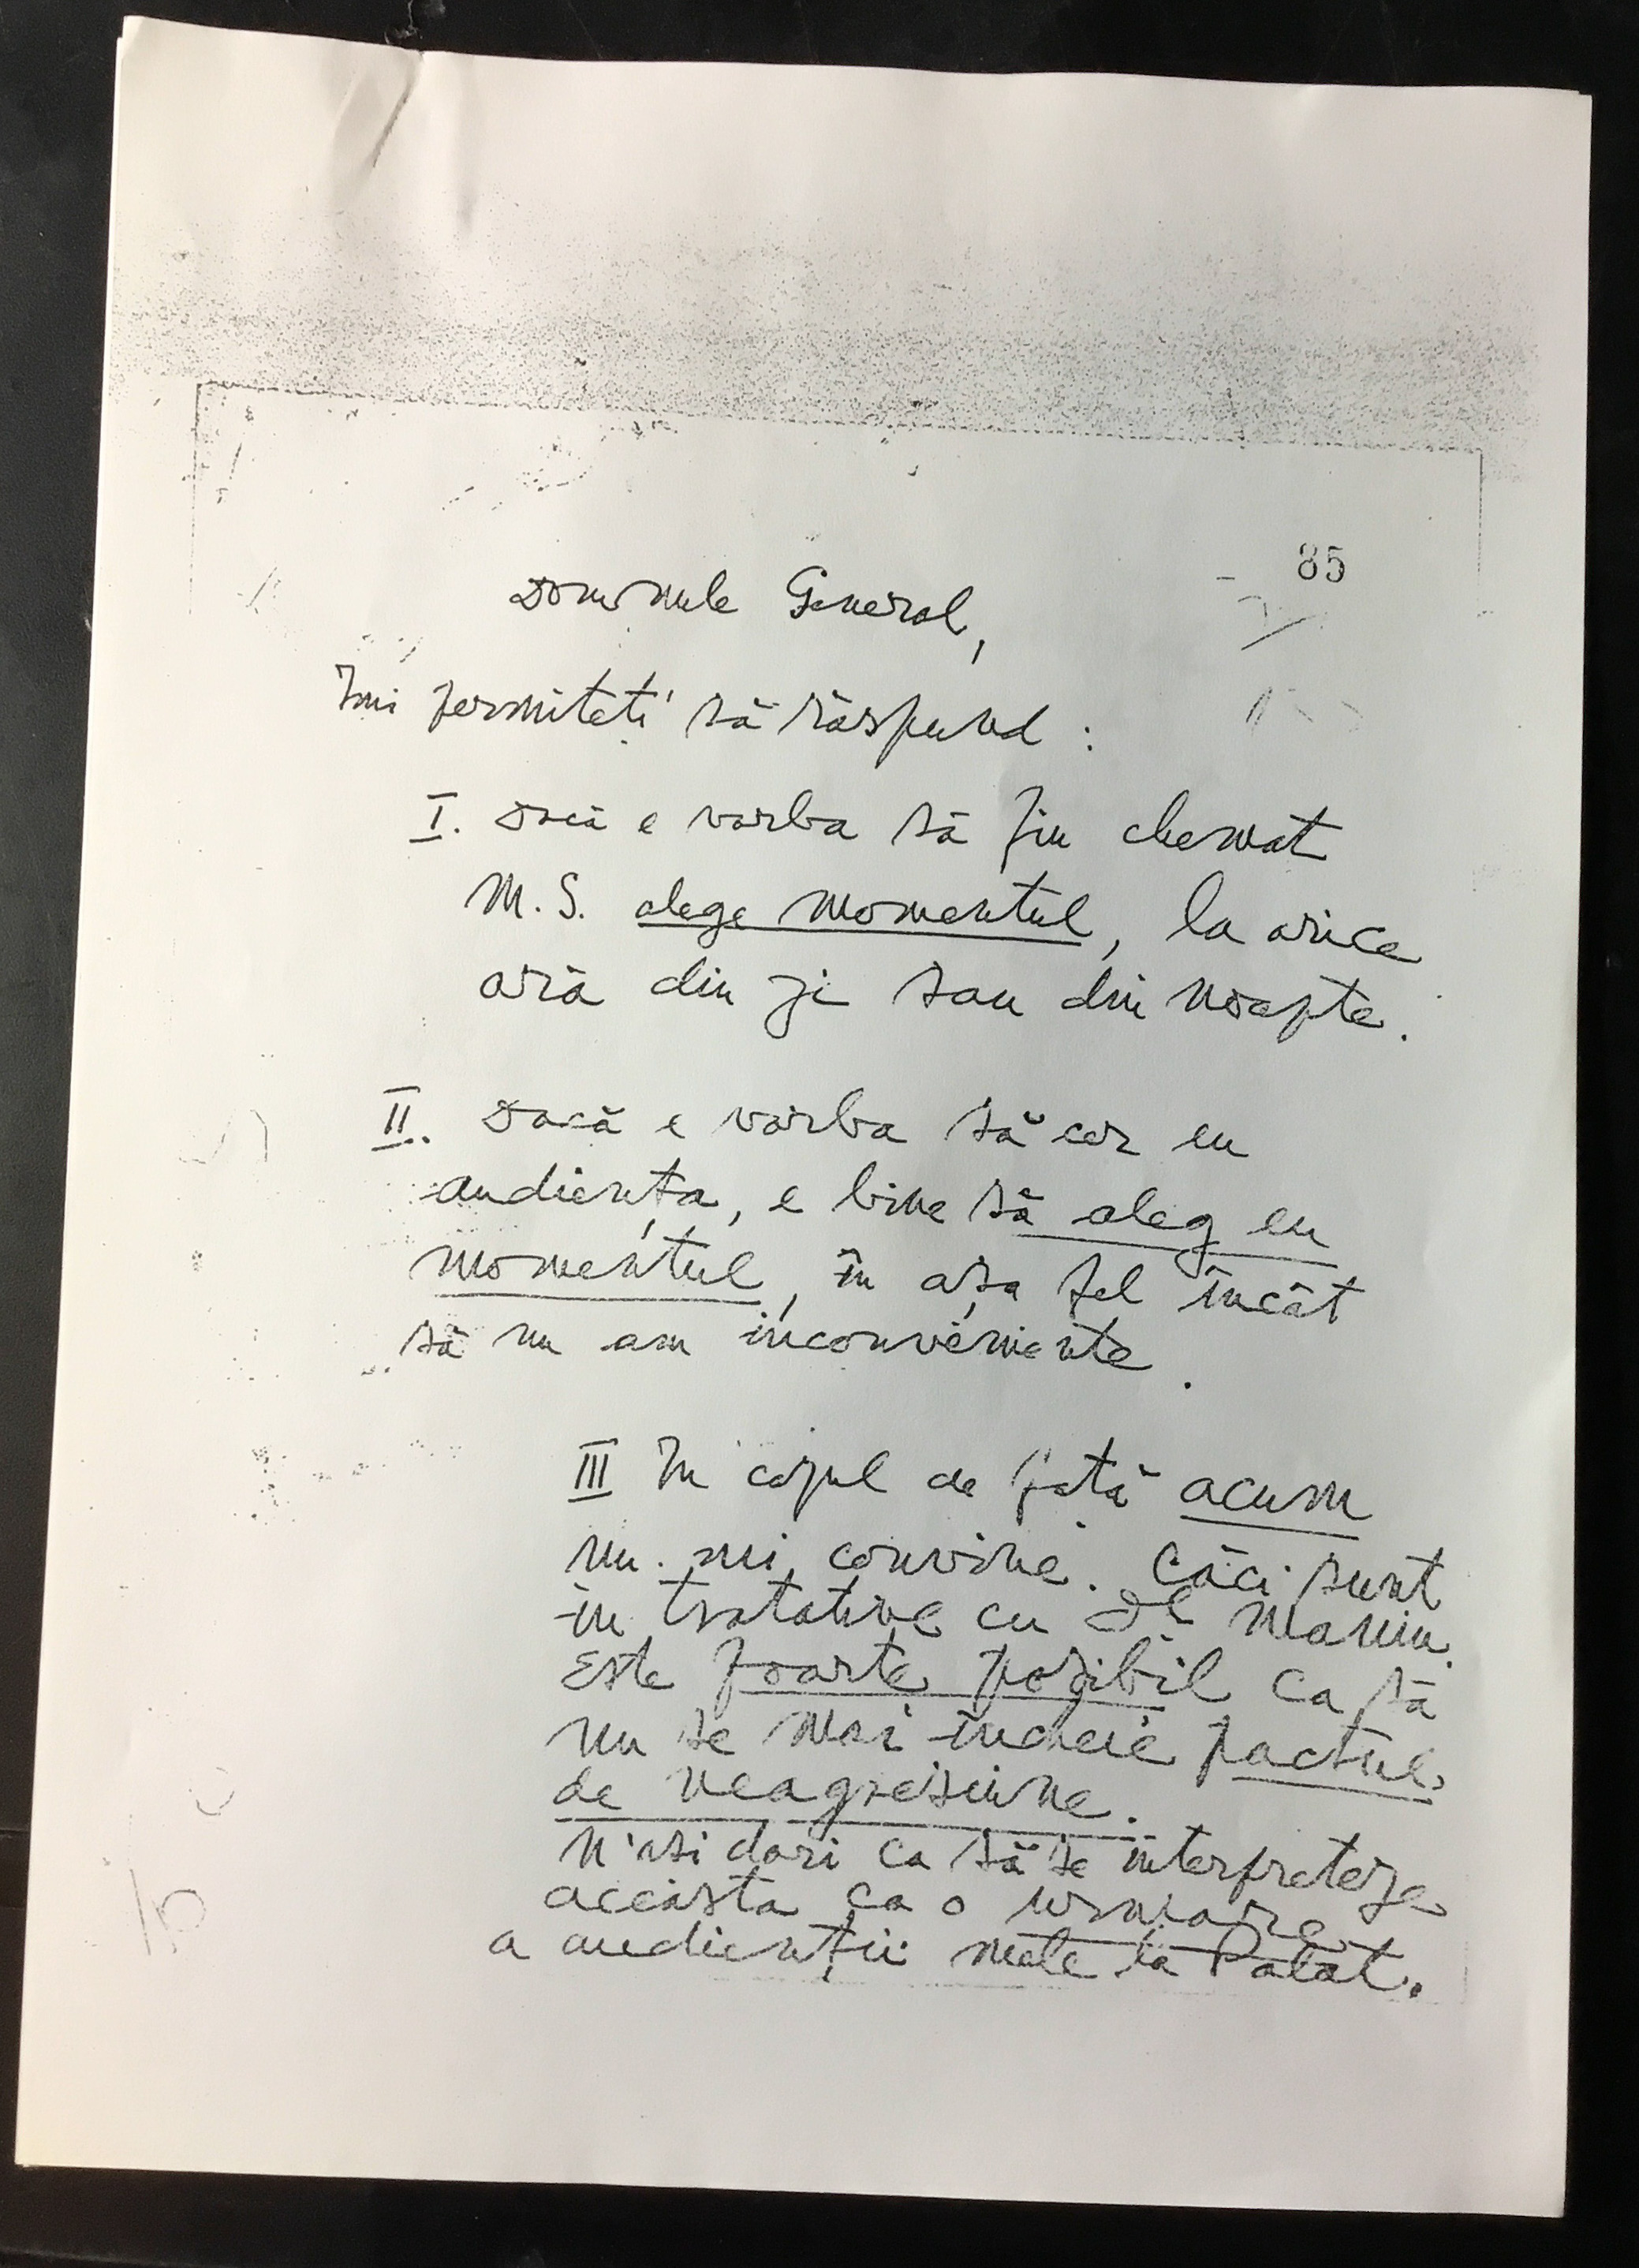 85
Domnule General,
Îmi permiteti să răspund :
I. Dacă e vorba să fiu chemat
M.S. alege momentul, la orice
oră din zi sau din noapte.
II. Dacă e vorba să cer eu
audiența, e bine să aleg eu
momentul, în așa fel încât
să nu am inconveniente.
III In cazul de fată acum
nu mi convine. Căci sunt
in tratative cu Dl Maniu.
Este foarte pozibil ca să
nu se mai incheie pactul
de neagresiune.
N'asi dori ca să se interpreteze
aceasta ca o urmare
a audienții mele la Palat.